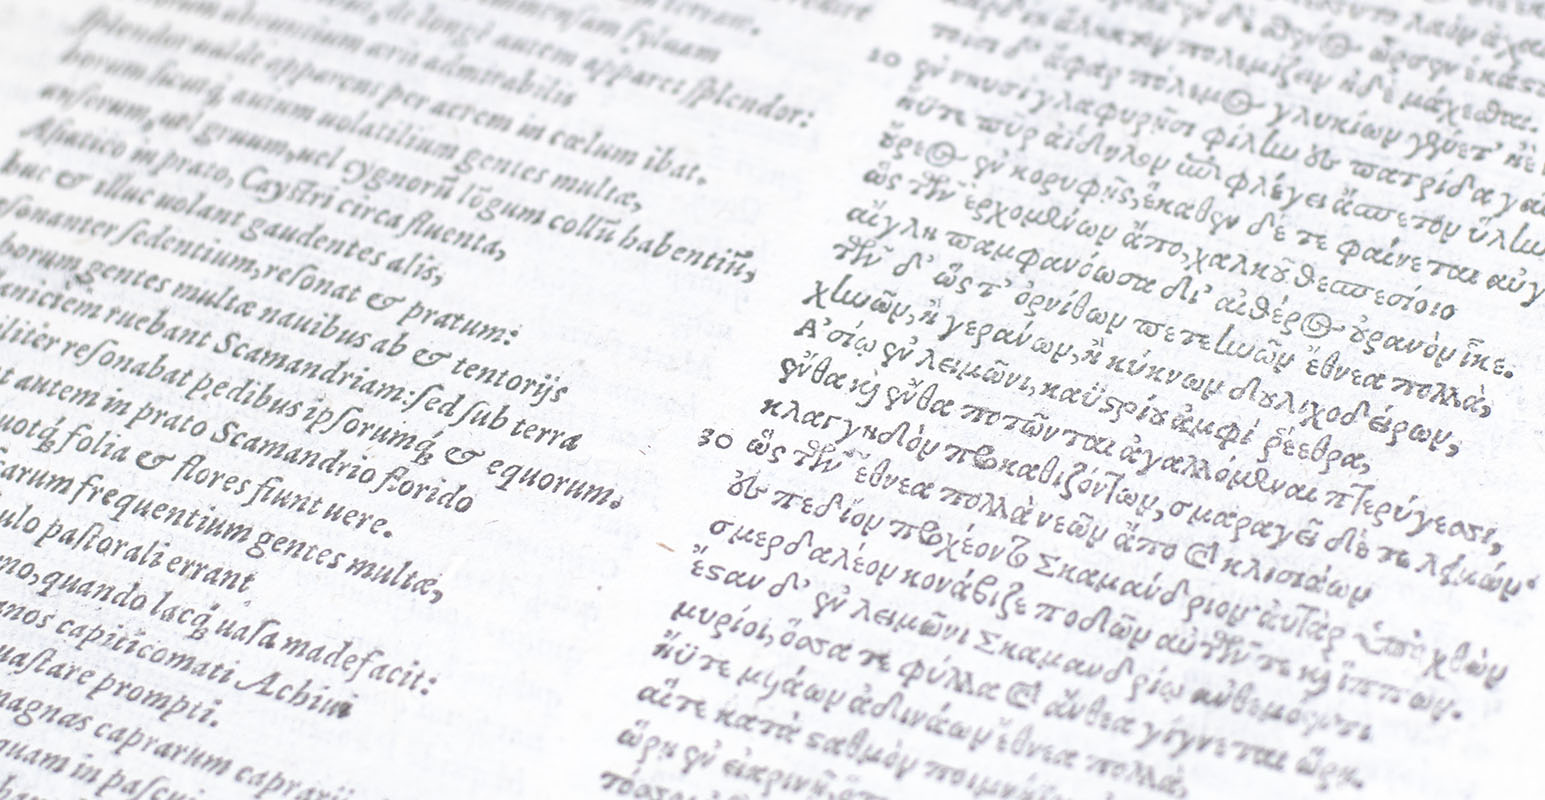 mmensam syluam
de longe autem apparet splendor:
orum abeuntium æris admirabilis
Splendor ualde apparens per aerem in cœlum ibat.
horum sicutq; auium uolatilium gentes multæ,
anserum, uel gruum, uel cygnorũ lõgum collũ habentiũ,
Asiatico in prato, Caystri circa fluenta,
huc & illuc uolant gaudentes alis,
esonanter sedentium, resonat & pratum:
horum gentes multæ nauibus ab & tentorijs
aniciem ruebant Scamandriam: sed sub terra
iliter resonabat pedibus ipsorumq́; & equorum.
t autem in prato Scamandrio florido
uotq́; folia & flores fiunt uere.
carum frequentium gentes multæ,
ulo pastorali errant
no, quando lacq́; uasa madefacit:
nos capiticomati Achiui
uastare prompti.
magnas caprarum caprarij
uam in pascui
ἄλληκτον πολεμίζειν ἠδὲ μάχεσθαι.
τοῖσι δ' ἄφαρ πόλεμος γλυκίων γένετ' ἠὲ
20 ἐν νηυσὶ γλαφυρῇσι φίλην ἐς πατρίδα γαῖ
ἠΰτε πῦρ ἀίδηλον ἐπιφλέγει ἄσπετον ὕλην
οὔρεος ἐν κορυφῇς, ἕκαθεν δέ τε φαίνεται αὐγ
ὣς τῶν ἐρχομένων ἄπο, χαλκοῦ θεσπεσίοιο
αἴγλη παμφανόωσα δι' αἰθέρος οὐρανὸν ἷκε.
τῶν δ' ὥς τ' ὀρνίθων πετεηνῶν ἔθνεα πολλὰ,
χηνῶν, ἢ γεράνων, ἢ κύκνων δουλιχοδείρων,
Ἀσίῳ ἐν λειμῶνι, καϋστρίου ἀμφὶ ῥέεθρα,
ἔνθα καὶ ἔνθα ποτῶνται ἀγαλλόμεναι πτερύγεσσι,
κλαγγηδὸν προκαθιζόντων, σμαραγεῖ δέ τε λειμών·
30 ὣς τῶν ἔθνεα πολλὰ νεῶν ἄπο καὶ κλισιάων
ἐς πεδίον προχέοντο Σκαμάνδριον· αὐτὰρ ὑπὸ χθὼν
σμερδαλέον κονάβιζε ποδῶν αὐτῶν τε καὶ ἵππων.
ἔσαν δ' ἐν λειμῶνι Σκαμανδρίῳ ἀνθεμόεντι
μυρίοι, ὅσα τε φύλλα καὶ ἄνθεα γίγνεται ὥρῃ.
ἠΰτε μυιάων ἀδινάων ἔθνεα πολλὰ,
αἵτε κατὰ σαθμὸν ποιμνήϊον
ὥρῃ ἐν εἰαρινῇ,